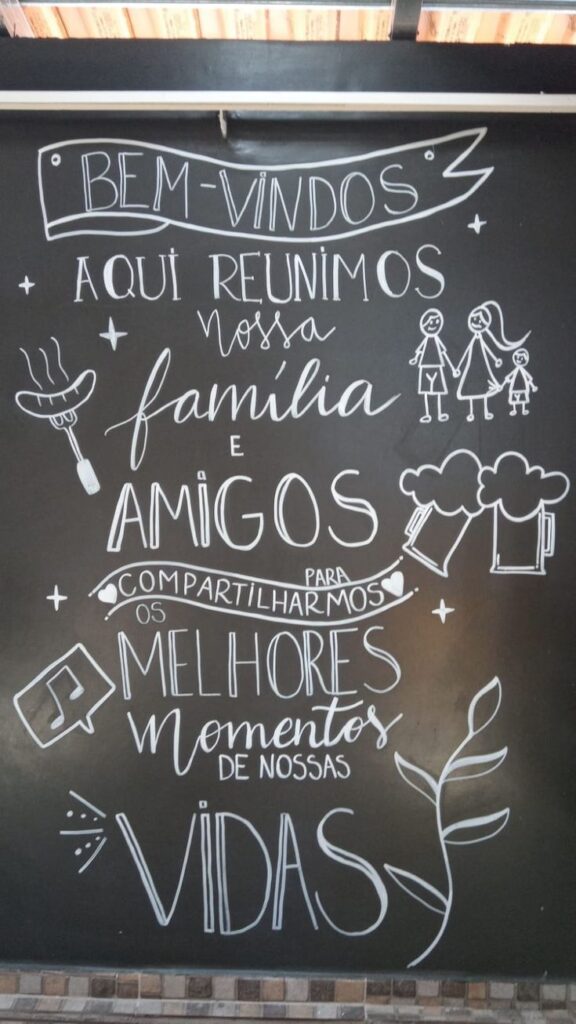 BEM-VINDOS
AQUI REUNIMOS
nossa
família
E
AMIGOS
PARA
COMPARTILHARMOS
OS
MELHORES
Momentos
DE NOSSAS
VIDAS